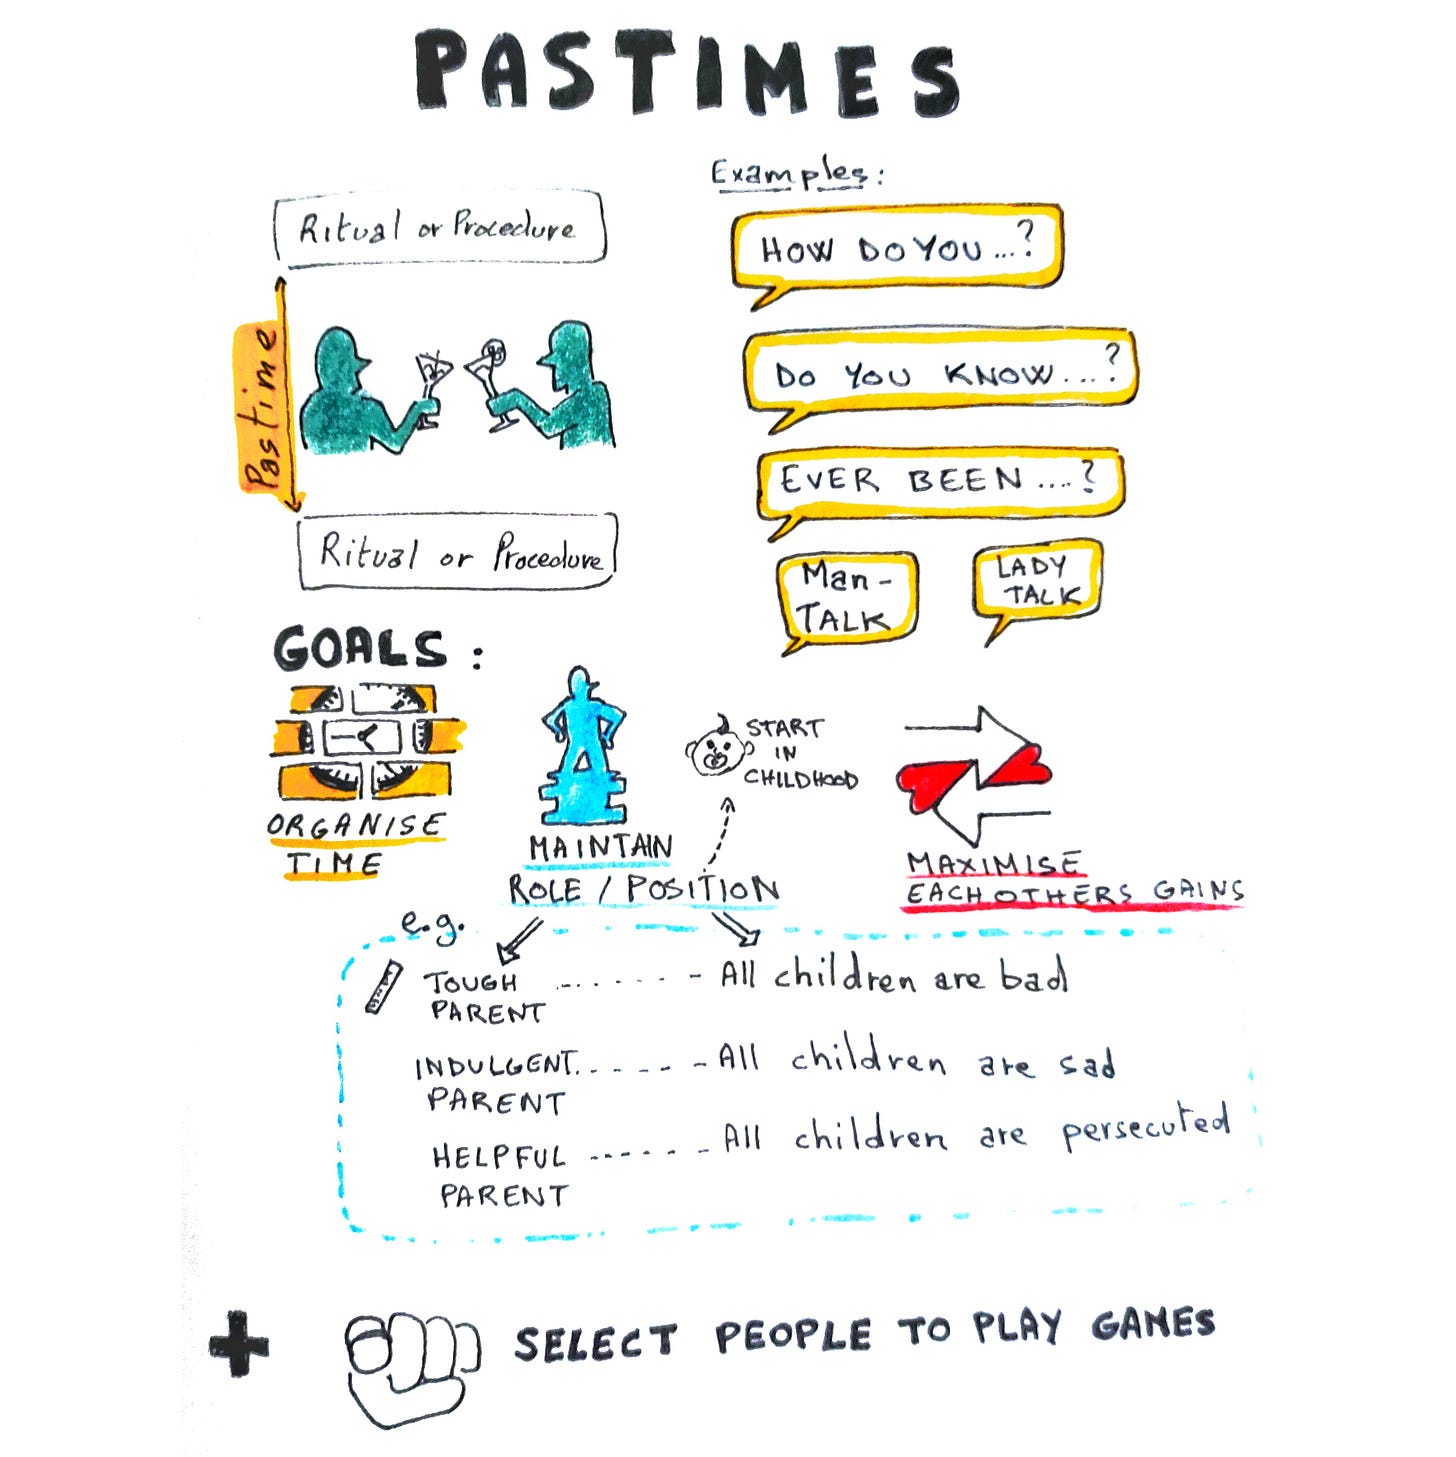 PASTIMES
Ritual or Procedure
Pastime
Ritual or Procedure
Examples:
HOW DO YOU...?
DO YOU KNOW....?
EVER BEEN....?
Man-
TALK
LADY
TALK
GOALS:
ORGANISE
TIME
MAINTAIN
ROLE / POSITION
START
IN
CHILDHOOD
MAXIMISE
EACH OTHERS GAINS
e.g.
TOUGH
PARENT
All children are bad
INDULGENT
PARENT
All children are sad
HELPFUL
PARENT
All children are persecuted
+
SELECT PEOPLE TO PLAY GAMES